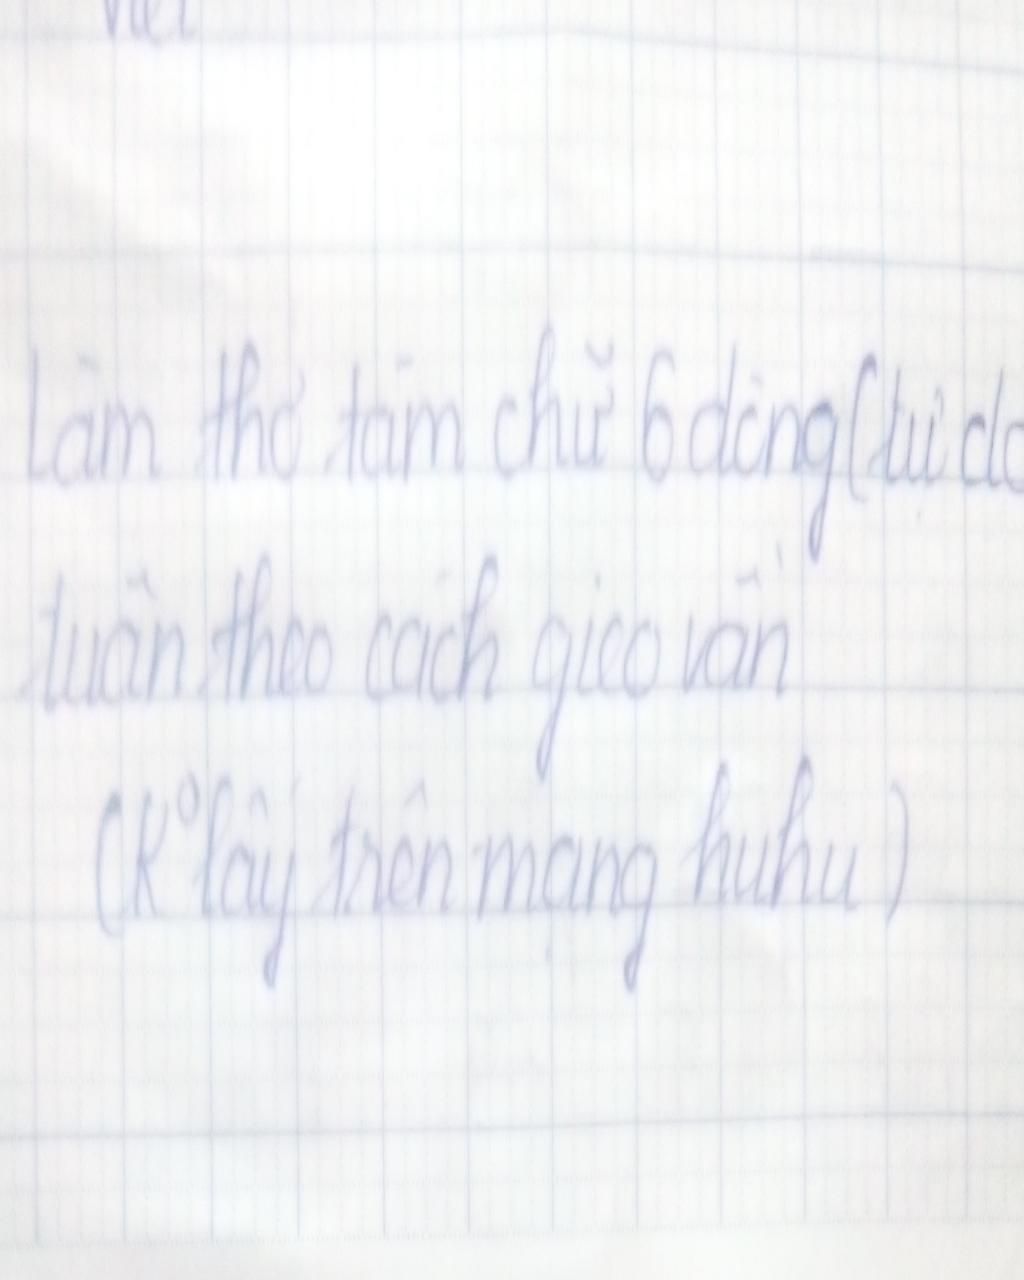 Làm thơ tám chữ 6 dòng (tự do
tuân theo cách gieo vần
(K° lấy trên mạng huhu)